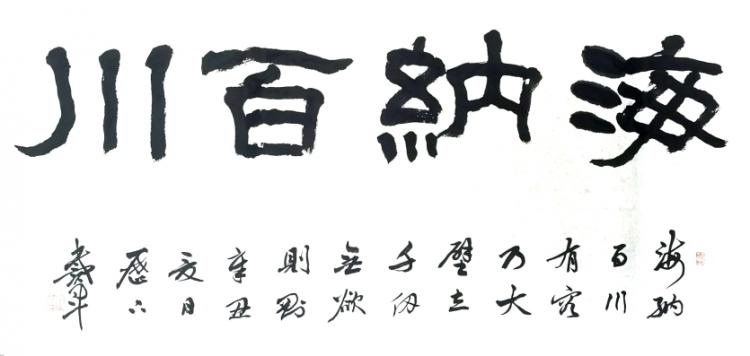 海納百川
海納
百川
有容
乃大
壁立
千仞
無欲
則剛
辛丑
夏日